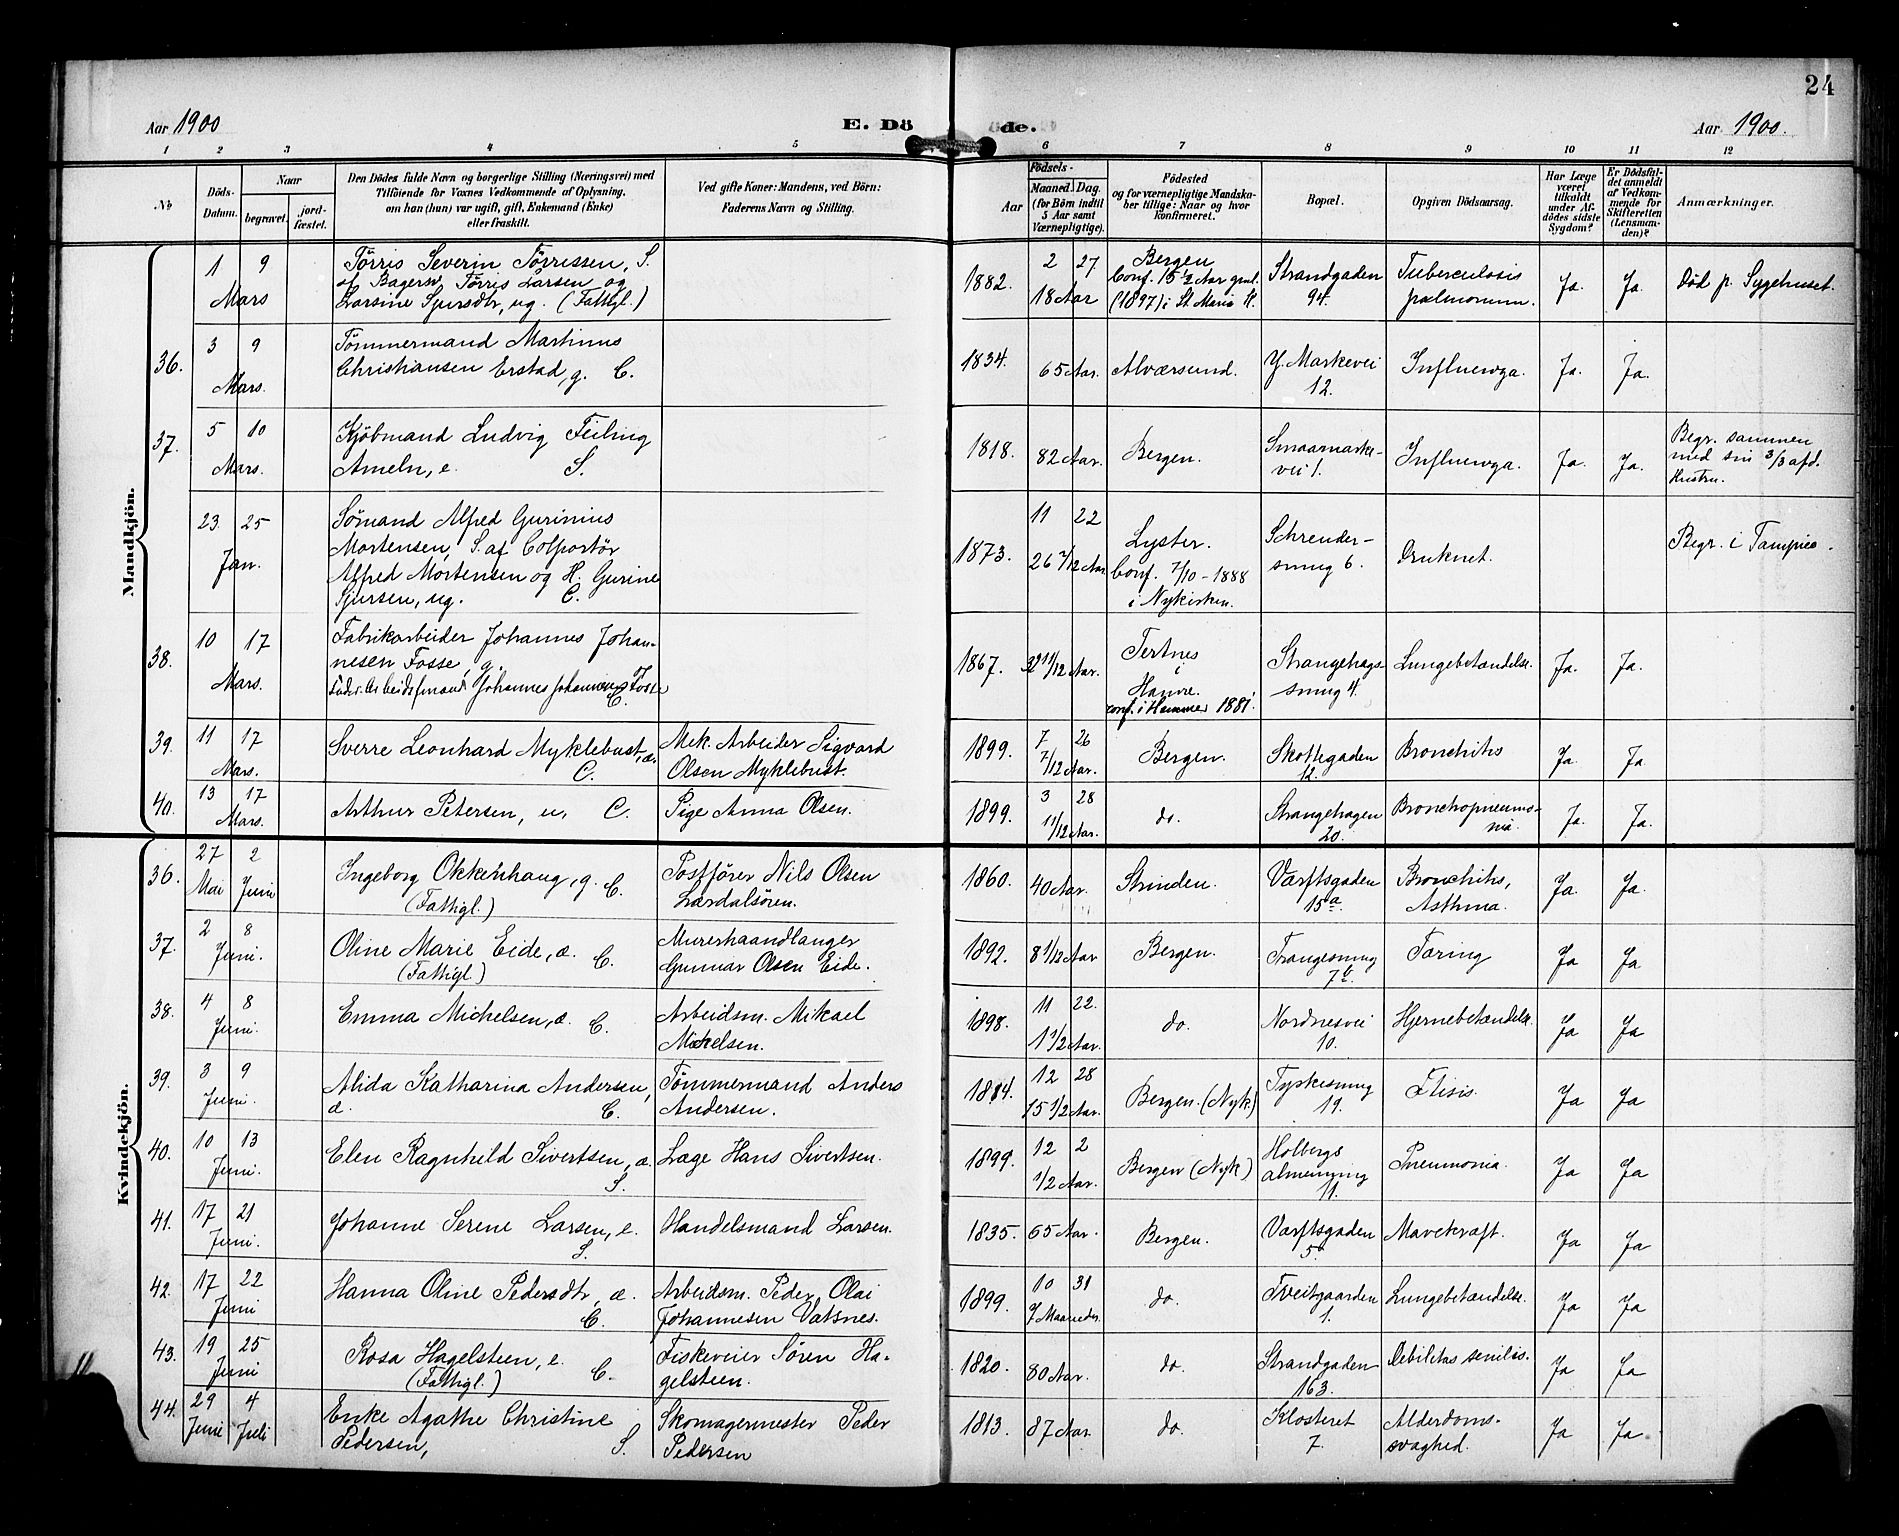 24
Aar 1900
E. Dö
de.
Aar 1900.
1 2 3 4 5 6 7 8 9 10 11 12
No
Döds-
Datum.
Naar
begravet.
jord-
fæstet.
Den Dödes fulde Navn og borgerlige Stilling (Næringsvei) med
Tilföiende for Voxnes Vedkommende af Oplysning,
om han (hun) var ugift, gift, Enkemand (Enke)
eller fraskilt.
Ved gifte Koner: Mandens, ved Börn:
Faderens Navn og Stilling.
Födsels-
Aar
Maaned. Dag.
(for Börn indtil
5 Aar samt
Værnepligtige).
Födested
og for værnepligtige Mandska-
ber tillige: Naar og hvor
Konfirmeret.
Bopæl.
Opgiven Dödsaarsag.
Har Læge
været
tilkaldt
under Af-
dödes sidste
Sygdom?
Er Dödsfal-
det anmeldt
af Vedkom-
mende for
Skifteretten
(Lensman-
den)?
Anmærkninger.
Mandkjön.
1 9
Mars
Tørris Severin Tørrissen, S.
af Bagersv. Tørris Larsen og
Larsine Sjursdtr, ug. (Fattigl.)
1882.
2 27
18 Aar
Bergen
Conf. 15 1/2 Aar gml.
(1897) i St. Maria K.
Strandgaden
94.
Tuberculosis
pulmonum.
Ja. Ja.
Død p. Sygehuset.
36.
3 9
Mars.
Tømmermand Martinus
Christiansen Erstad, g. C.
1834.
65 Aar.
Alværsund.
Y. Markevei
12.
Influenza.
Ja. Ja.
37.
5 10
Mars.
Kjöbmand Ludvig Feiling
Ameln, e. S.
1818.
82 Aar.
Bergen.
Smaamarke-
vei 1.
Influenza.
Ja. Ja.
Begr. sammen
med sin 3/3 afd.
Hustru.
23. 25
Jan.
Sömand Alfred Gurinius
Mortensen, S. af Colportör
Alfred Mortensen og H. Gurine
Sjursen, ug. C.
1873.
11 22
26 2/12 Aar.
Lyster.
Conf. 7/10 - 1888
i Nykirken.
Schreuder-
smug 6.
Druknet.
Begr. i Tampico.
38.
10 17
Mars.
Fabrikarbeider Johannes Johan-
nesen Fosse, g.
Fader: Arbeidsmand Johannes Johannesen Fosse
C.
1867.
32 11/12 Aar.
Tertnes
i
Hamre.
conf. i Hammer 1881.
Strangehags-
smug 4.
Lungebetændelse.
Ja. Ja.
39.
11 17
Mars.
Sverre Leonhard Myklebust, æ.
C.
Mek. Arbeider Sigvard
Olsen Myklebust.
1899.
7 26
7/12 Aar.
Bergen.
Skottegaden
12.
Bronchitis
Ja. Ja.
40.
13 17
Mars.
Arthur Petersen, u, C.
Pige Anna Olsen.
1899.
3 28
11/12 Aar.
do.
Strangehagen
20.
Bronchopneumo-
nia.
Ja. Ja.
Kvindekjön.
36.
27 2
Mai Juni
Ingeborg Okkenhaug, g. C.
(Fattigl.)
Postfører Nils Olsen
Lærdalsören.
1860.
40 Aar.
Strinden.
Værftsgaden
15a.
Bronchitis,
Asthma.
Ja Ja.
37.
2 8
Juni.
Oline Marie Eide, æ. C.
(Fattigl.)
Murerhaandlanger
Gunnar Olsen Eide.
1892.
8 1/12 Aar
Bergen.
Trangesmug
7b.
Tæring
Ja Ja
38.
4 8
Juni.
Emma Michelsen, æ. C.
Arbeidsm. Mikael
Mikkelsen.
1898.
11 22.
1 1/2 Aar.
do.
Nordnesvei
10.
Hjernebetændelse.
Ja Ja
39.
3 9
Juni.
Alida Katharina Andersen,
æ. C.
Tømmermand Anders
Andersen.
1884.
12 28
15 1/2 Aar.
Bergen. (Nyk)
Tyskesmug
19.
Ftisis.
Ja Ja
40.
10 13
Juni.
Elen Ragnhild Sivertsen, æ.
S.
Læge Hans Sivertsen.
1899.
12 2
1/2 Aar.
Bergen (Nyk)
Holbergs
almenning
11.
Pneumonia.
Ja Ja
41.
17 21
Juni.
Johanne Serene Larsen, e.
S.
Handelsmand Larsen.
1835.
65 Aar.
Bergen.
Værftsgaden
5.
Mavekræft.
Ja Ja
42.
17 22
Juni
Hanna Oline Pedersdtr, æ.
C.
Arbeidsm. Peder Olai
Johannesen Vatsnes.
1899.
10 31
7 Maaneder.
do.
Tveitgaarden
1.
Lungebetændelse.
Ja Ja
43.
19 25
Juni
Rosa Hagelsteen, e.
(Fattigl.) C.
Fiskeveier Søren Ha-
gelsteen.
1820.
80 Aar.
do.
Strandgaden
163.
Debilitas senilis.
Ja Ja
44.
29 4
Juni Juli
Enke Agathe Christine
Pedersen, S.
Skomagermester Peder
Pedersen
1813.
87 Aar.
do.
Klosteret
7.
Alderdoms-
svaghed.
Ja Ja